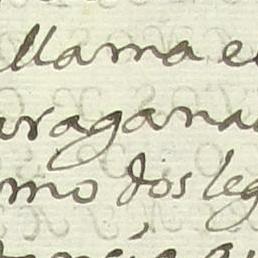 llama e
aragana
mo dos leg